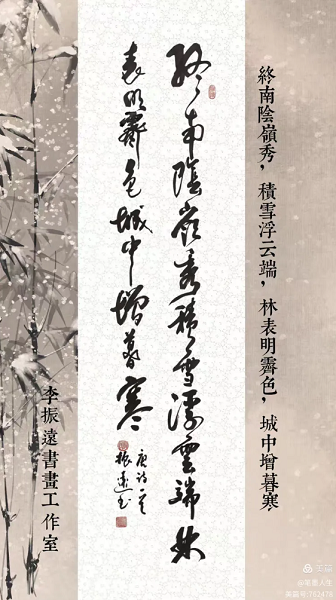 終南陰嶺秀，積雪浮云端，林表明霽色，城中增暮寒
終南陰嶺秀積雪浮雲端林
表明霽色城中增暮寒
唐詩一首
振遠書
李振遠書畫工作室